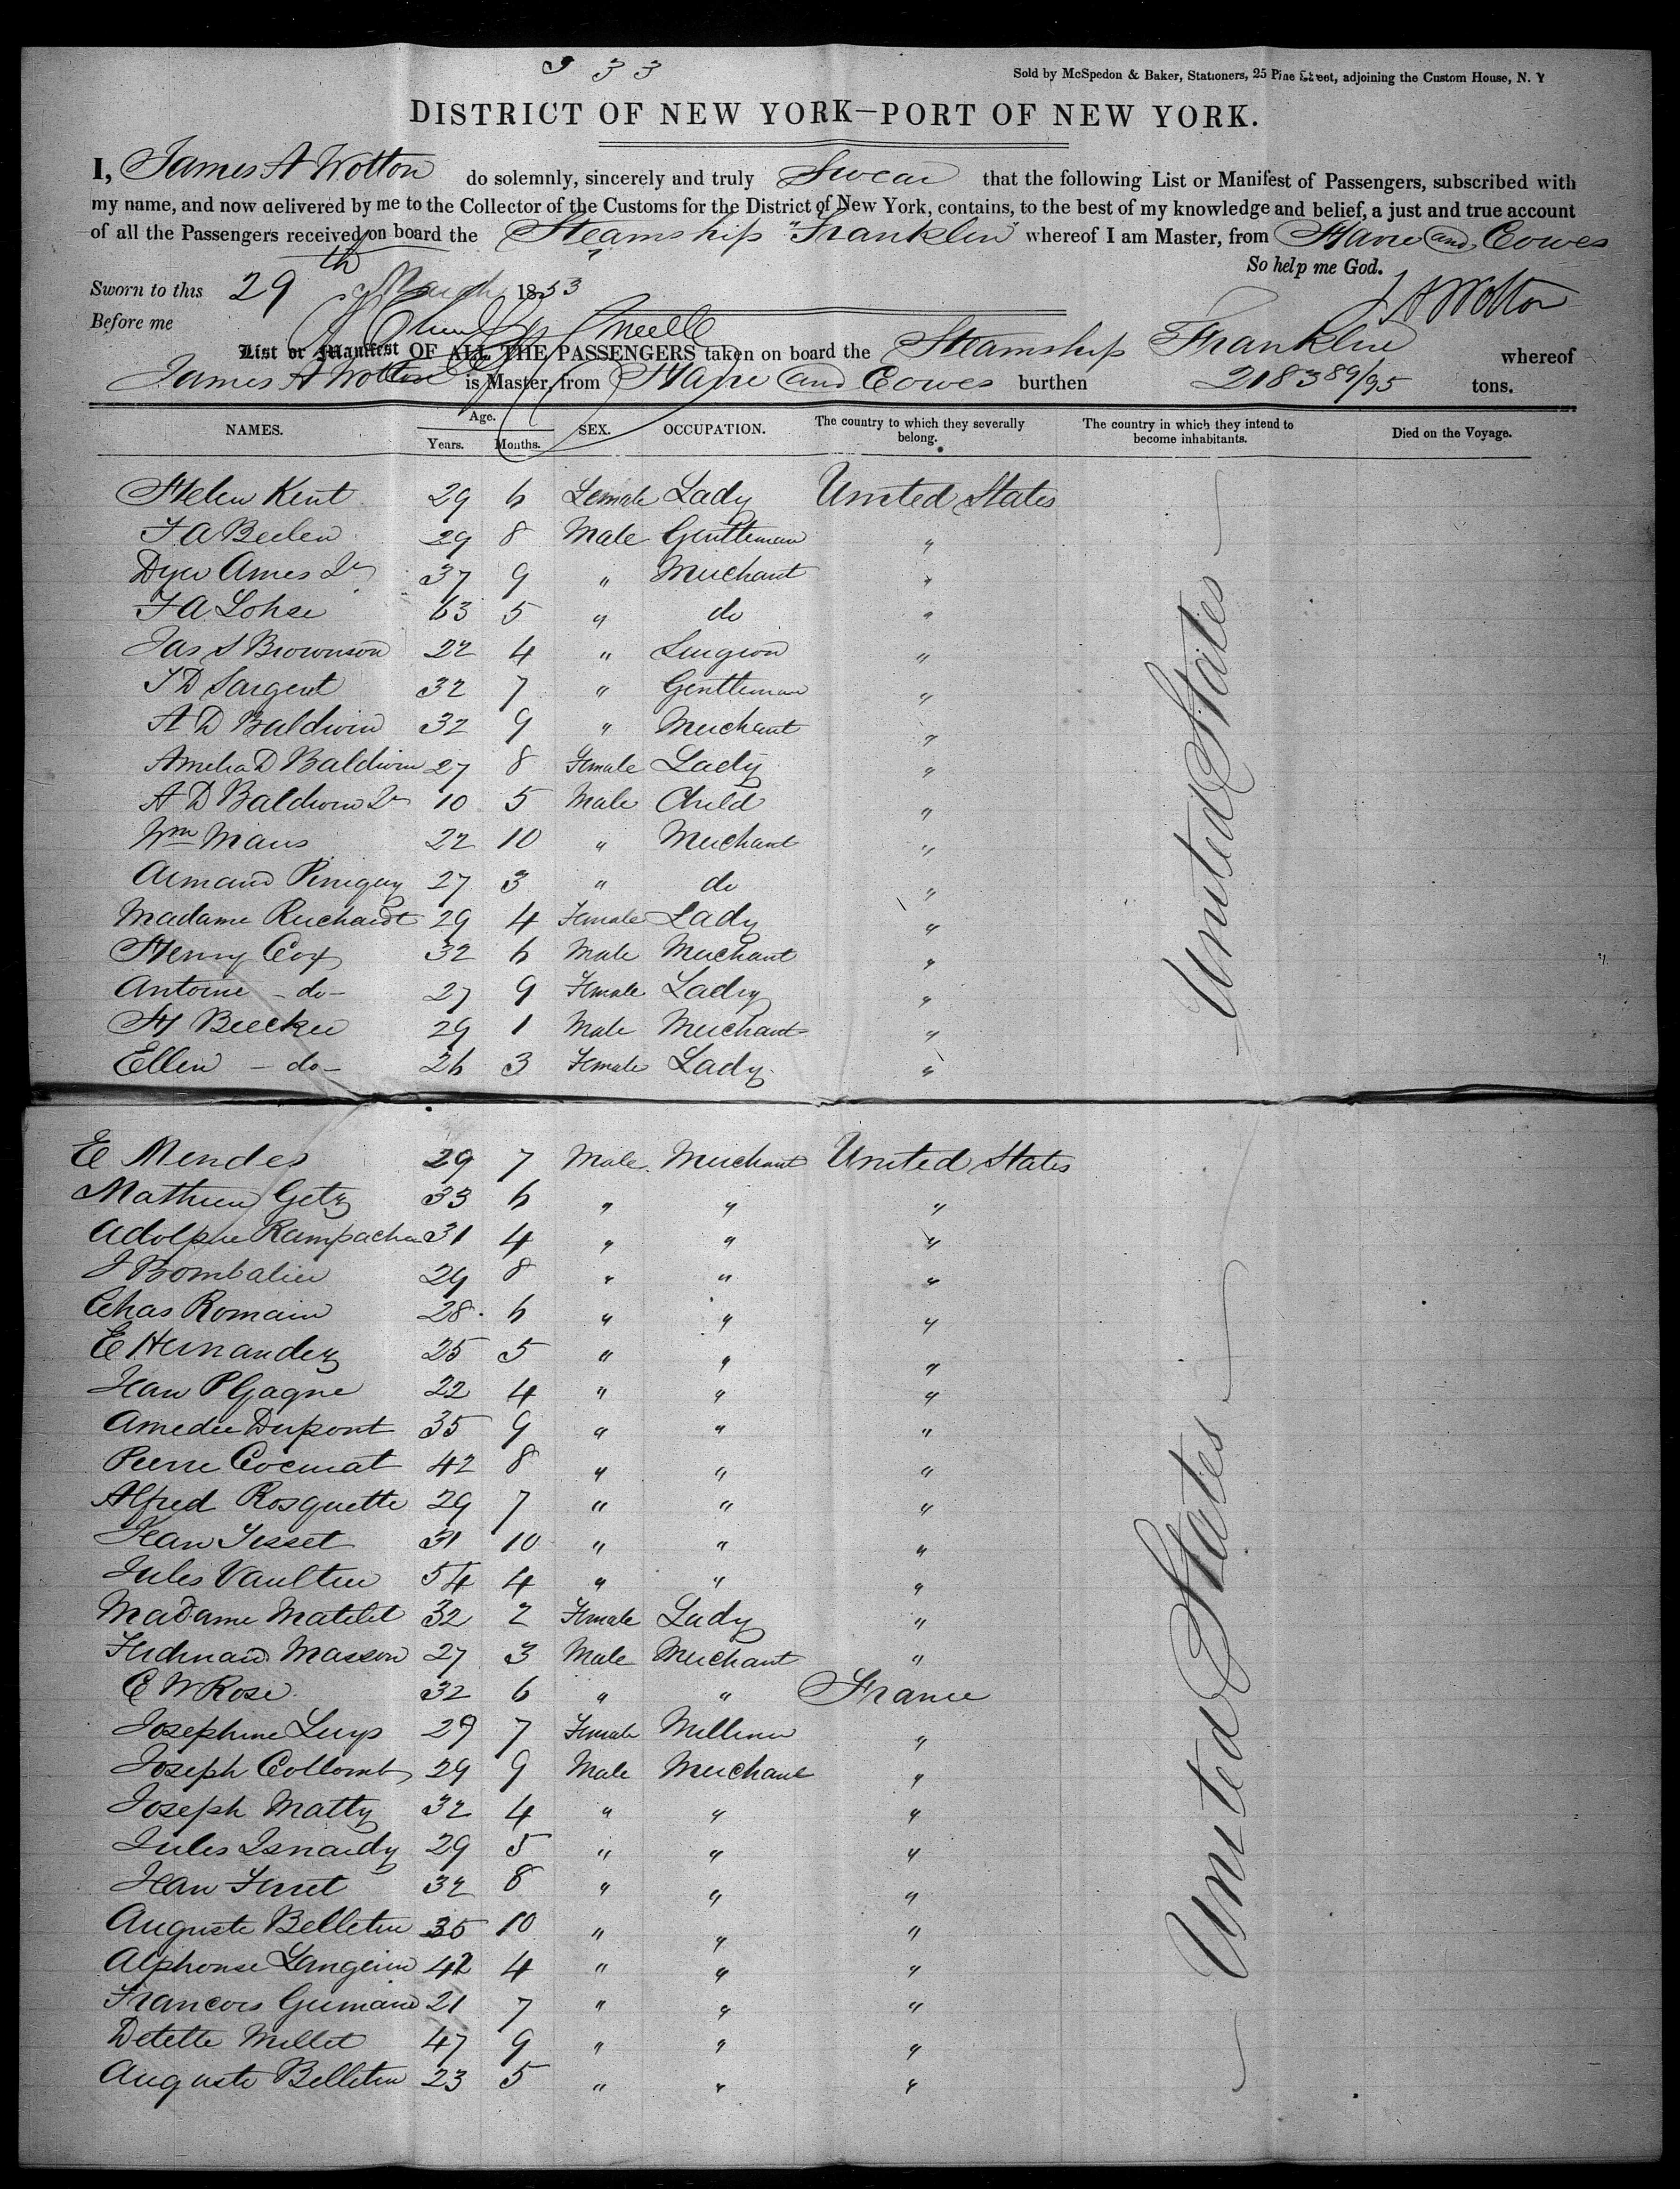 333
Sold by McSpedon & Baker, Stationers, 25 Pine Street, adjoining the Custom House, N. Y
DISTRICT OF NEW YORK—PORT OF NEW YORK.
I, James A Wotton do solemnly, sincerely and truly Swear that the following List or Manifest of Passengers, subscribed with
my name, and now delivered by me to the Collector of the Customs for the District of New York, contains, to the best of my knowledge and belief, a just and true account
of all the Passengers received on board the Steamship "Franklin" whereof I am Master, from Havre and Cowes
So help me God.
Sworn to this 29th of March 1853 J A Wotton
Before me
List or Manifest OF ALL THE PASSENGERS taken on board the Steamship Franklin whereof
James A Wotton is Master, from Havre and Cowes burthen 2183 89/95 tons.
NAMES. Age. Years. Months. SEX. OCCUPATION. The country to which they severally belong. The country in which they intend to become inhabitants. Died on the Voyage.
Helen Kent 29 6 Female Lady United States
F A Beelen 29 8 Male Gentleman "
Dyer Ames Jr 37 9 " Merchant "
F A Lohse 63 5 " do "
Jas S Brownson 22 4 " Surgeon "
J D Sargent 32 7 " Gentleman "
A D Baldwin 32 9 " Merchant "
Amelia D Baldwin 27 8 Female Lady "
A D Baldwin Jr 10 5 Male Child "
Wm Maus 22 10 " Merchant "
Armand Pineguy 27 3 " do "
Madame Ruchardt 29 4 Female Lady "
Henry Cox 32 6 Male Merchant "
Antoine - do - 27 9 Female Lady "
H Beecker 29 1 Male Merchant "
Ellen - do - 26 3 Female Lady "
United States
E Mendes 29 7 Male Merchant United States
Mathieu Getz 33 6 " " "
Adolphe Rampacher 31 4 " " "
J Bombalier 29 8 " " "
Chas Romain 28 6 " " "
E Hernandez 25 5 " " "
Jean P Gagne 22 4 " " "
Amedee Dupont 35 9 " " "
Pierre Cocurat 42 8 " " "
Alfred Rosquette 29 7 " " "
Jean Tisset 31 10 " " "
Jules Vaultier 54 4 " " "
Madame Matelet 32 2 Female Lady "
Ferdinand Masson 27 3 Male Merchant "
C W Rose 32 6 " " France
Josephine Luys 29 7 Female Milliner "
Joseph Collomb 29 9 Male Merchant "
Joseph Matty 32 4 " " "
Jules Isnardy 29 5 " " "
Jean Ferret 32 8 " " "
Auguste Belletier 35 10 " " "
Alphonse Langevin 42 4 " " "
Francois Germain 21 7 " " "
Detette Millet 47 9 " " "
Auguste Belletier 23 5 " " "
United States